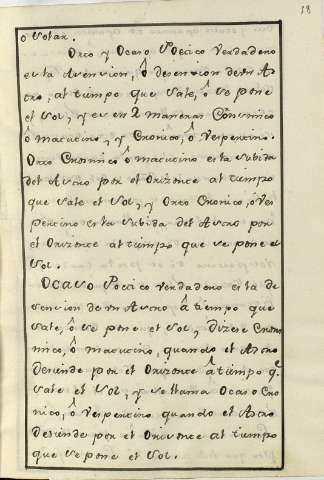 18
o Votar.
Orto y Ocaso Poetico verdadero
es la Asencion, ô desencion de un As
tro, al tiempo que sale, ô se pone
el Sol, y es en 2 maneras Cosmico
ô macucino, y Cronico, ô Vespertino.
Orto Cosmico ô macucino es la subida
del Astro por el Orizonte al tiempo
que sale el Sol, y Orto Cronico, ô Ves
pertino es la subida del Astro por
el Orizonte al tiempo que se pone el
Sol.
Ocaso Poetico verdadero es la de
sencion de un Astro â tiempo que
sale, ô se pone el Sol, dizese Cosmo
mico, ô macucino, quando el Astro
desiende por el Orizonte â tiempo q.
sale el Sol, y se llama Ocaso Cro
nico, ô Vespertino quando el Astro
desiende por el Orizonte al tiempo
que se pone el Sol.